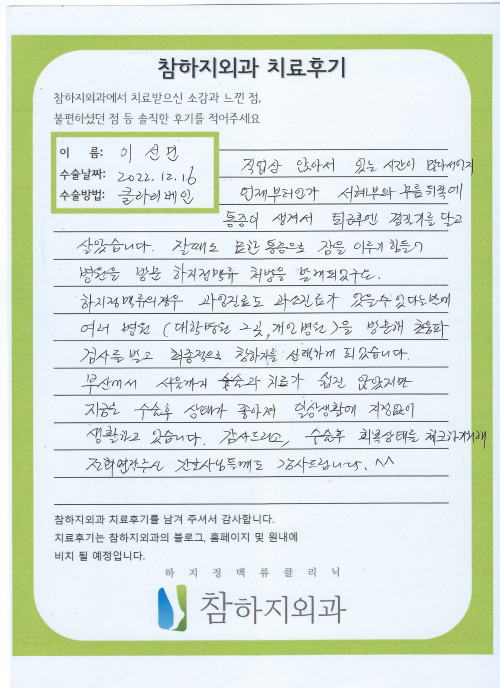 참하지외과 치료후기
참하지외과에서 치료받으신 소감과 느낀 점,
불편하셨던 점 등 솔직한 후기를 적어주세요
이 름: 이선민
수술날짜: 2022.12.16
수술방법: 클라리베인
직업상 앉아서 있는 시간이 많아서인지
언제부터인가 서혜부와 무릎뒤쪽에
통증이 생겨서 퇴근후엔 찜질기를 달고
살았습니다. 잘때도 또한 통증으로 잠을 이루기 힘들어
병원을 방문 하지정맥류 처방을 받게되었구요.
하지정맥류의경우 과잉진료도 과소진료가 있을수있다는말에
여러 병원 (대학병원 2곳, 개인병원)을 방문해 초음파
검사를 받고 최종적으로 참하지를 선택하게 되었습니다.
부산에서 서울까지 수술과 치료가 쉽진 않았지만
지금은 수술후 상태가 좋아져 일상생활에 지장없이
생활하고 있습니다. 감사드리고, 수술후 회복상태를 체크하기위해
전화연락주신 간호사님들께도 감사드립니다. ^^
참하지외과 치료후기를 남겨 주셔서 감사합니다.
치료후기는 참하지외과의 블로그, 홈페이지 및 원내에
비치 될 예정입니다.
하지정맥류클리닉
참하지외과